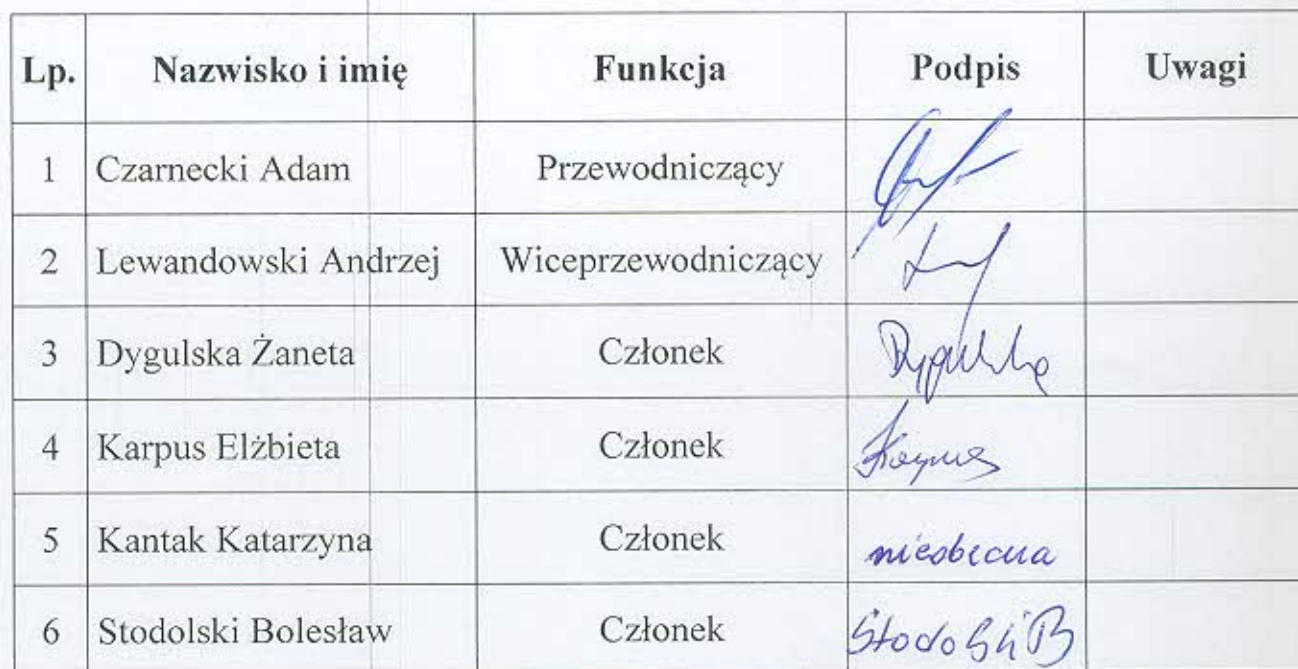 Lp. Nazwisko i imię Funkcja Podpis Uwagi
1 Czarnecki Adam Przewodniczący
2 Lewandowski Andrzej Wiceprzewodniczący
3 Dygulska Żaneta Członek Dygulska
4 Karpus Elżbieta Członek Karpus
5 Kantak Katarzyna Członek nieobecna
6 Stodolski Bolesław Członek Stodolski B